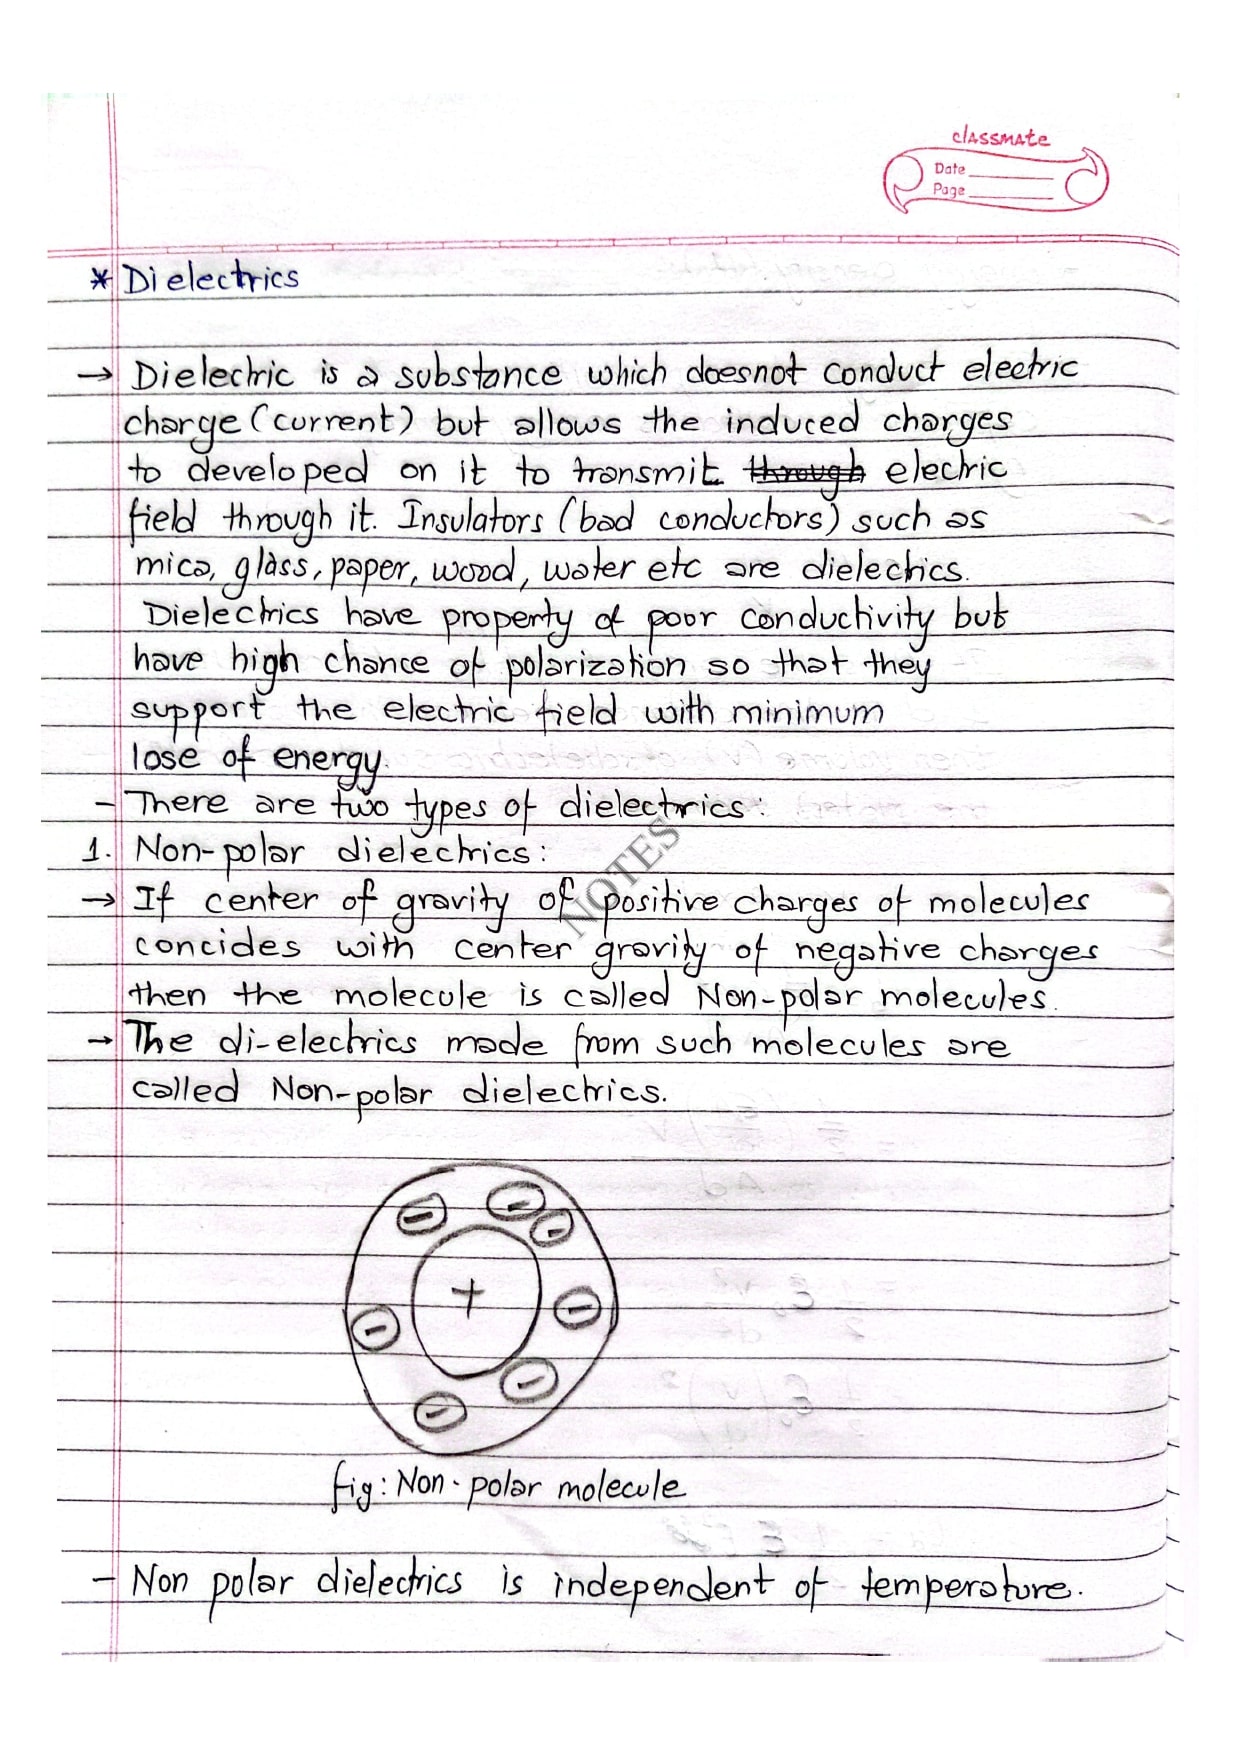 classmate
Date
Page
* Dielectrics
→ Dielectric is a substance which doesnot conduct electric
charge (current) but allows the induced charges
to developed on it to transmit through electric
field through it. Insulators (bad conductors) such as
mica, glass, paper, wood, water etc are dielectrics.
Dielectrics have property of poor conductivity but
have high chance of polarization so that they
support the electric field with minimum
lose of energy.
- There are two types of dielectrics:
1. Non-polar dielectrics:
→ If center of gravity of positive charges of molecules
concides with center gravity of negative charges
then the molecule is called Non-polar molecules.
→ The di-electrics made from such molecules are
called Non-polar dielectrics.
NOTES
- - -
+
- -
- -
fig: Non-polar molecule
- Non polar dielectrics is independent of temperature.